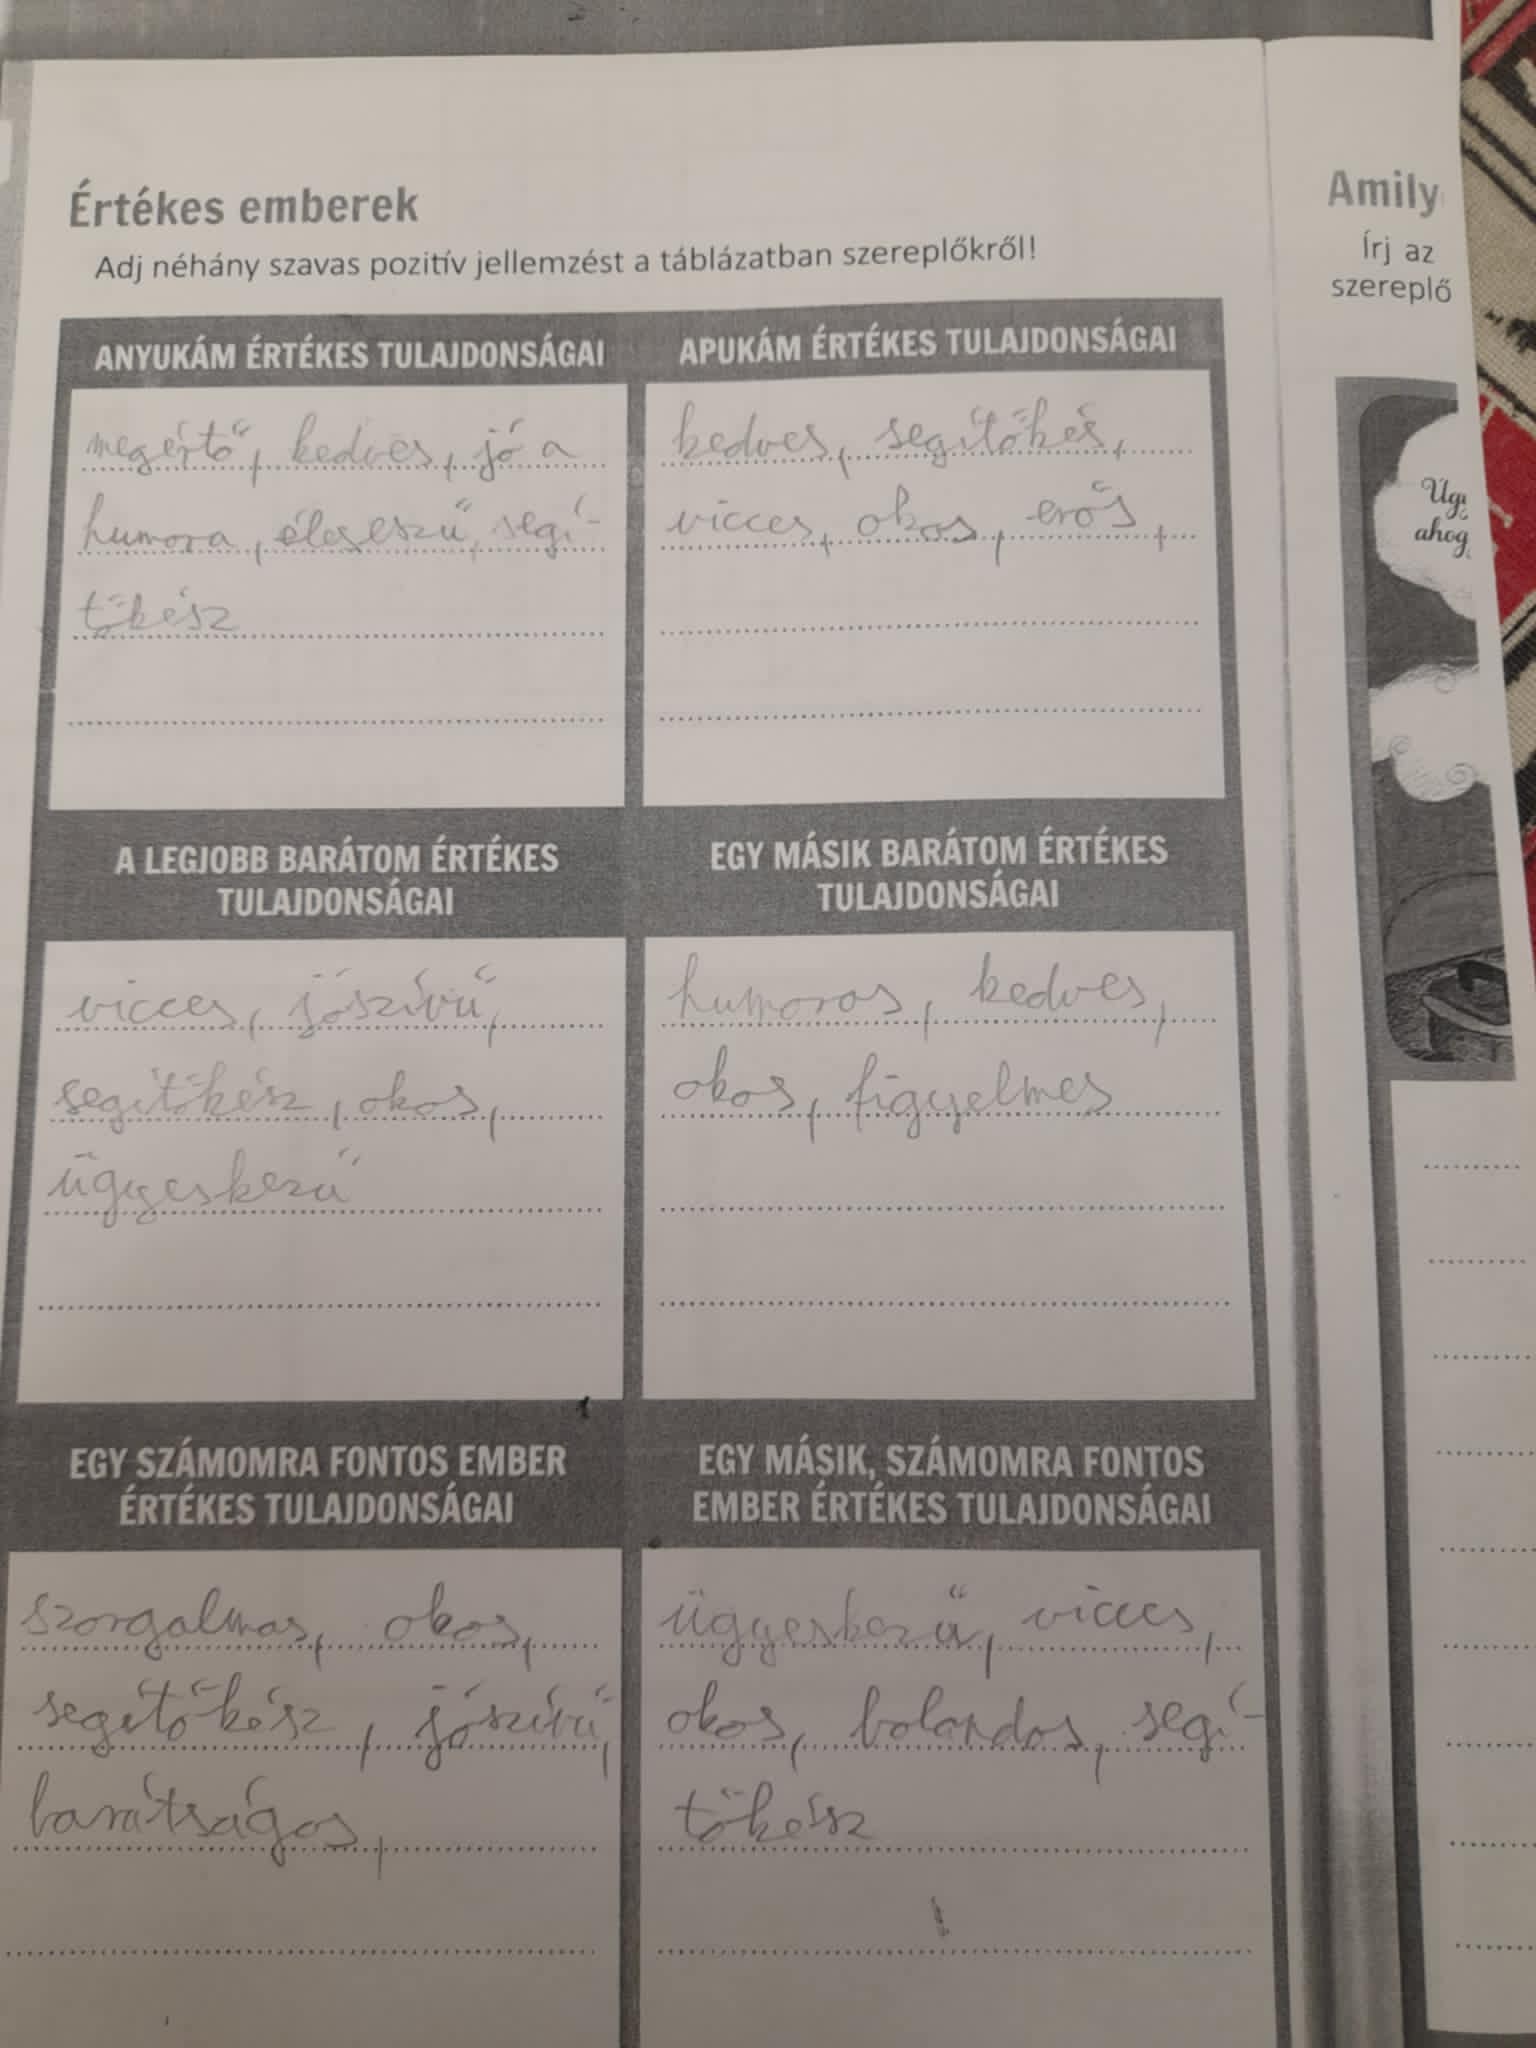 Értékes emberek
Adj néhány szavas pozitív jellemzést a táblázatban szereplőkről!
ANYUKÁM ÉRTÉKES TULAJDONSÁGAI
megértő, kedves, jó a
humora, éleseszű, segí-
tőkész
APUKÁM ÉRTÉKES TULAJDONSÁGAI
kedves, segítőkés,
vicces, okos, erős,
A LEGJOBB BARÁTOM ÉRTÉKES
TULAJDONSÁGAI
vicces, jószívű,
segítőkész, okos,
ügyeskezű
EGY MÁSIK BARÁTOM ÉRTÉKES
TULAJDONSÁGAI
humoros, kedves,
okos, figyelmes
EGY SZÁMOMRA FONTOS EMBER
ÉRTÉKES TULAJDONSÁGAI
szorgalmas, okos,
segítőkész, jószívű,
barátságos,
EGY MÁSIK, SZÁMOMRA FONTOS
EMBER ÉRTÉKES TULAJDONSÁGAI
ügyeskezű, vicces,
okos, bolondos, segí-
tőkész
Amily
Írj az
szereplő
ahog